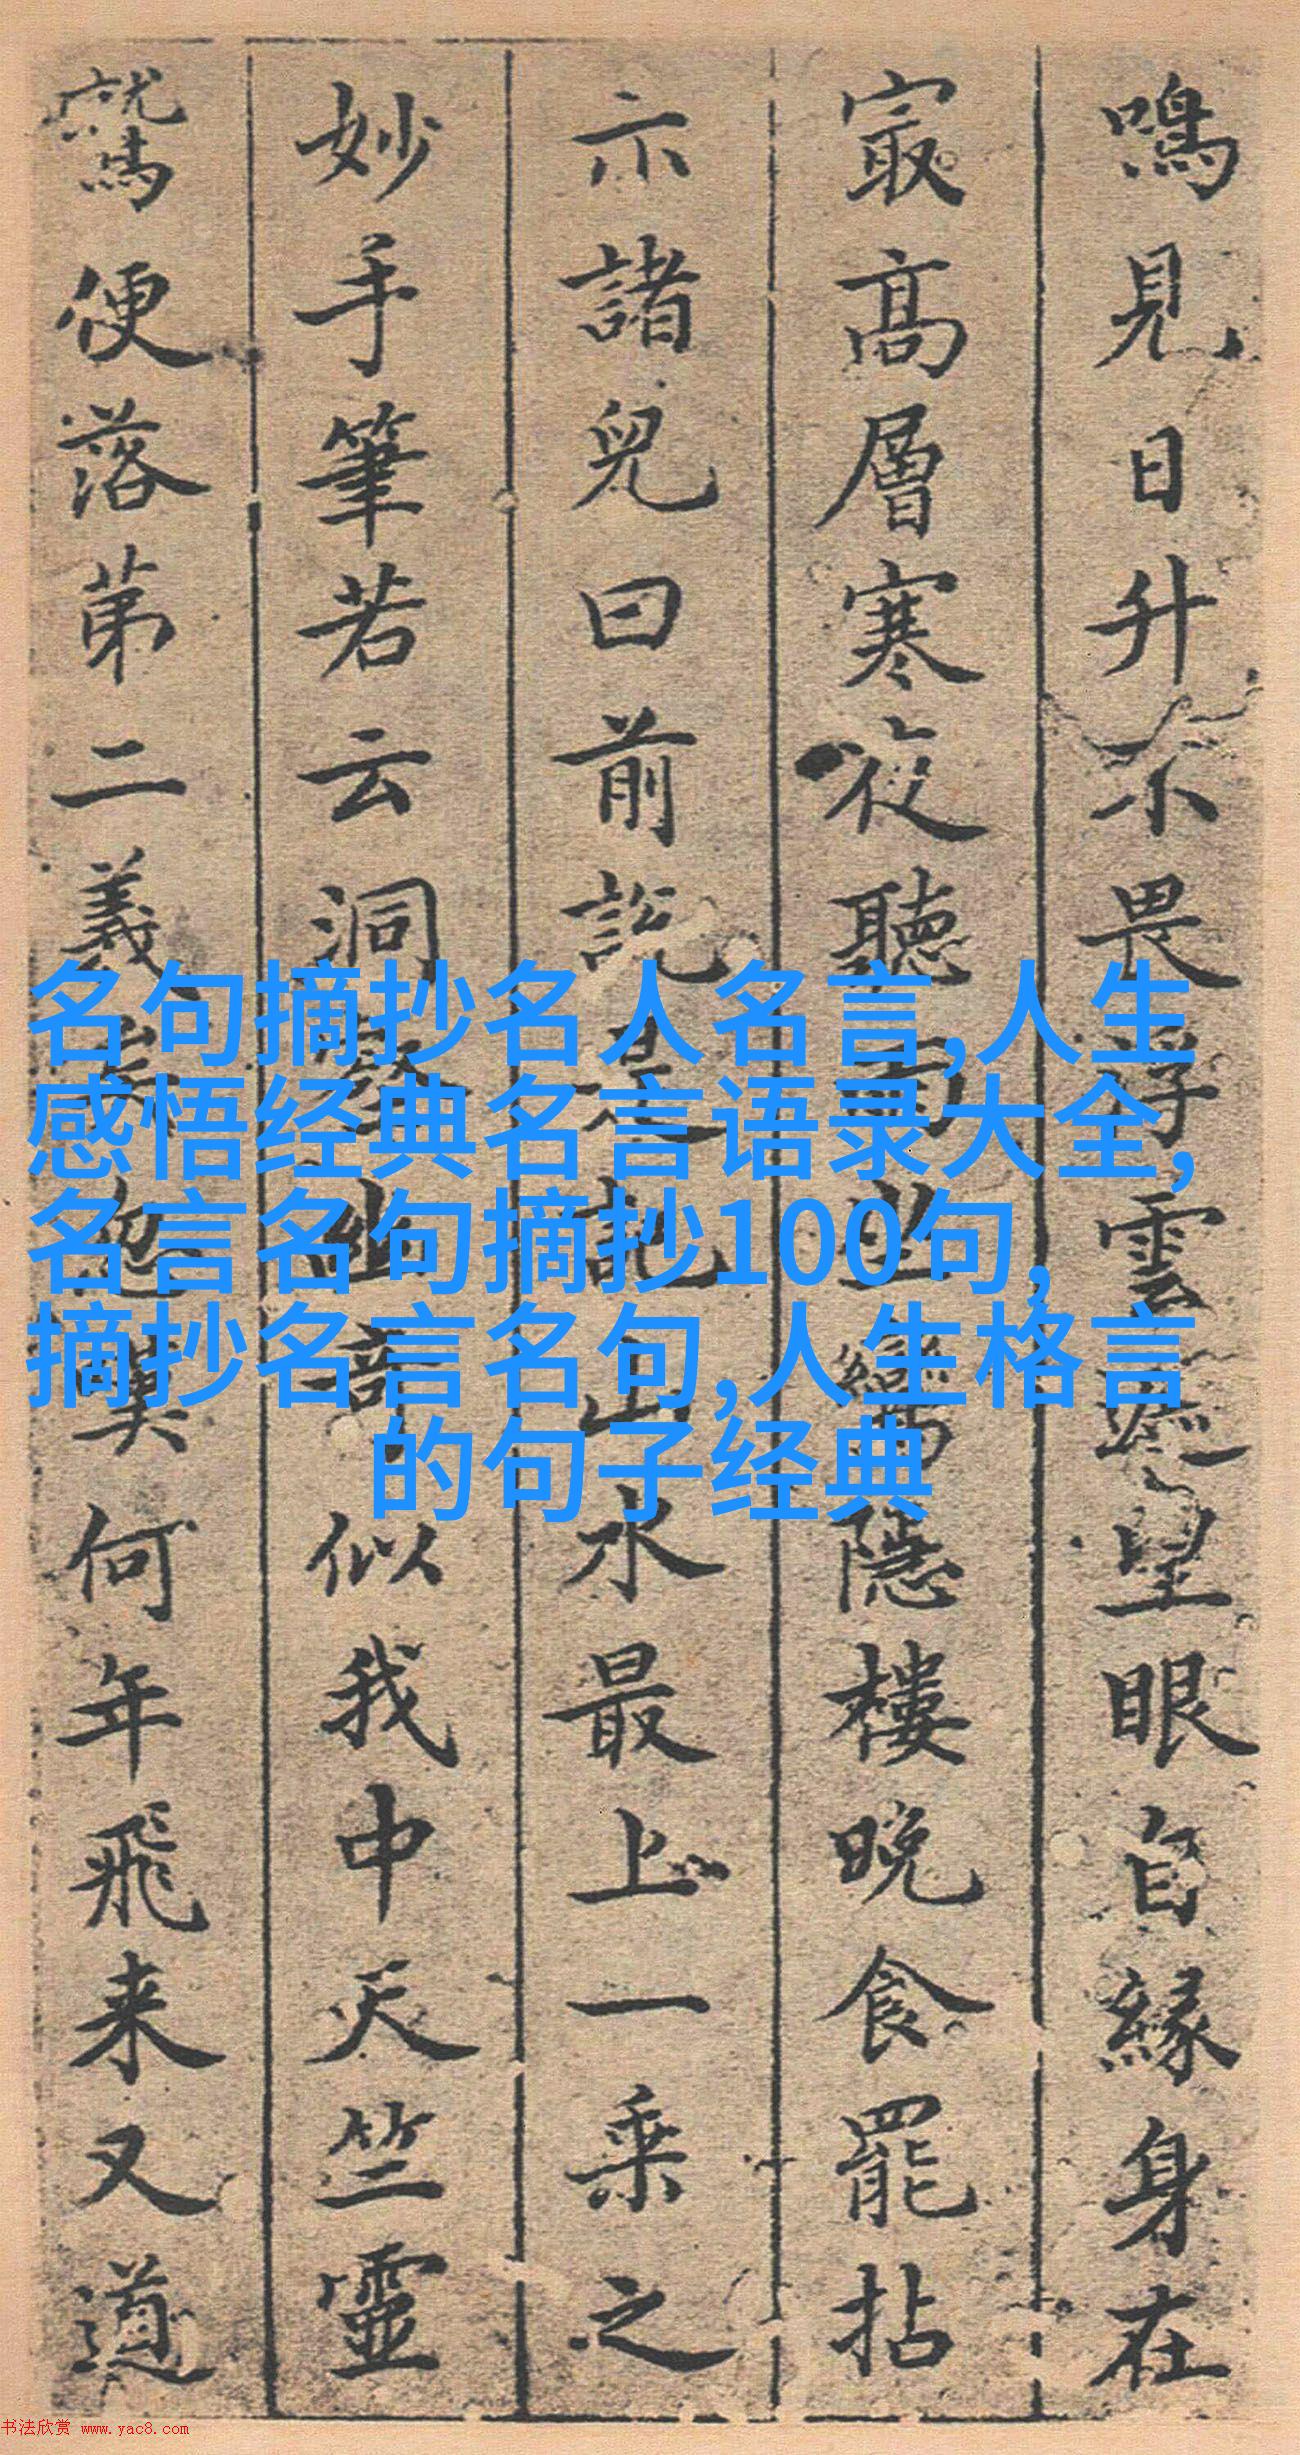 鳴見日升不畏浮雲遮望眼自緣身在
寂高層寒夜聽雨坐隱樓晚食罷拈
示諸兒曰前說是記山水最上一乘之
妙手筆若云洞壑幽奇似我中天竺靈
鷲便落第二義何年飛来又道
名句摘抄名人名言,人生
感悟经典名言语录大全,
名言名句摘抄100句,
摘抄名言名句,人生格言
的句子经典
书法欣赏 www.yac8.com